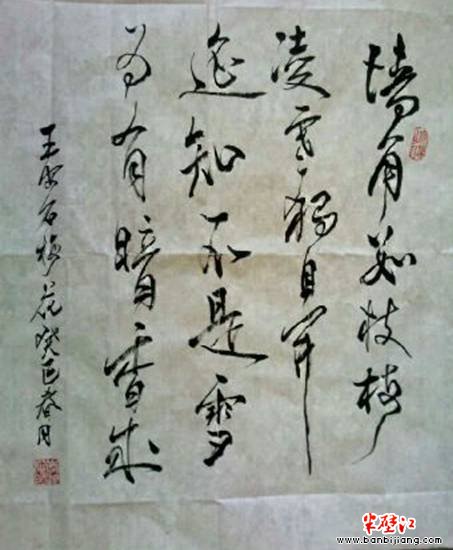 墙角数枝梅
凌寒独自开
遥知不是雪
为有暗香来
王安石梅花癸巳春月
半壁江
www.banbijiang.com